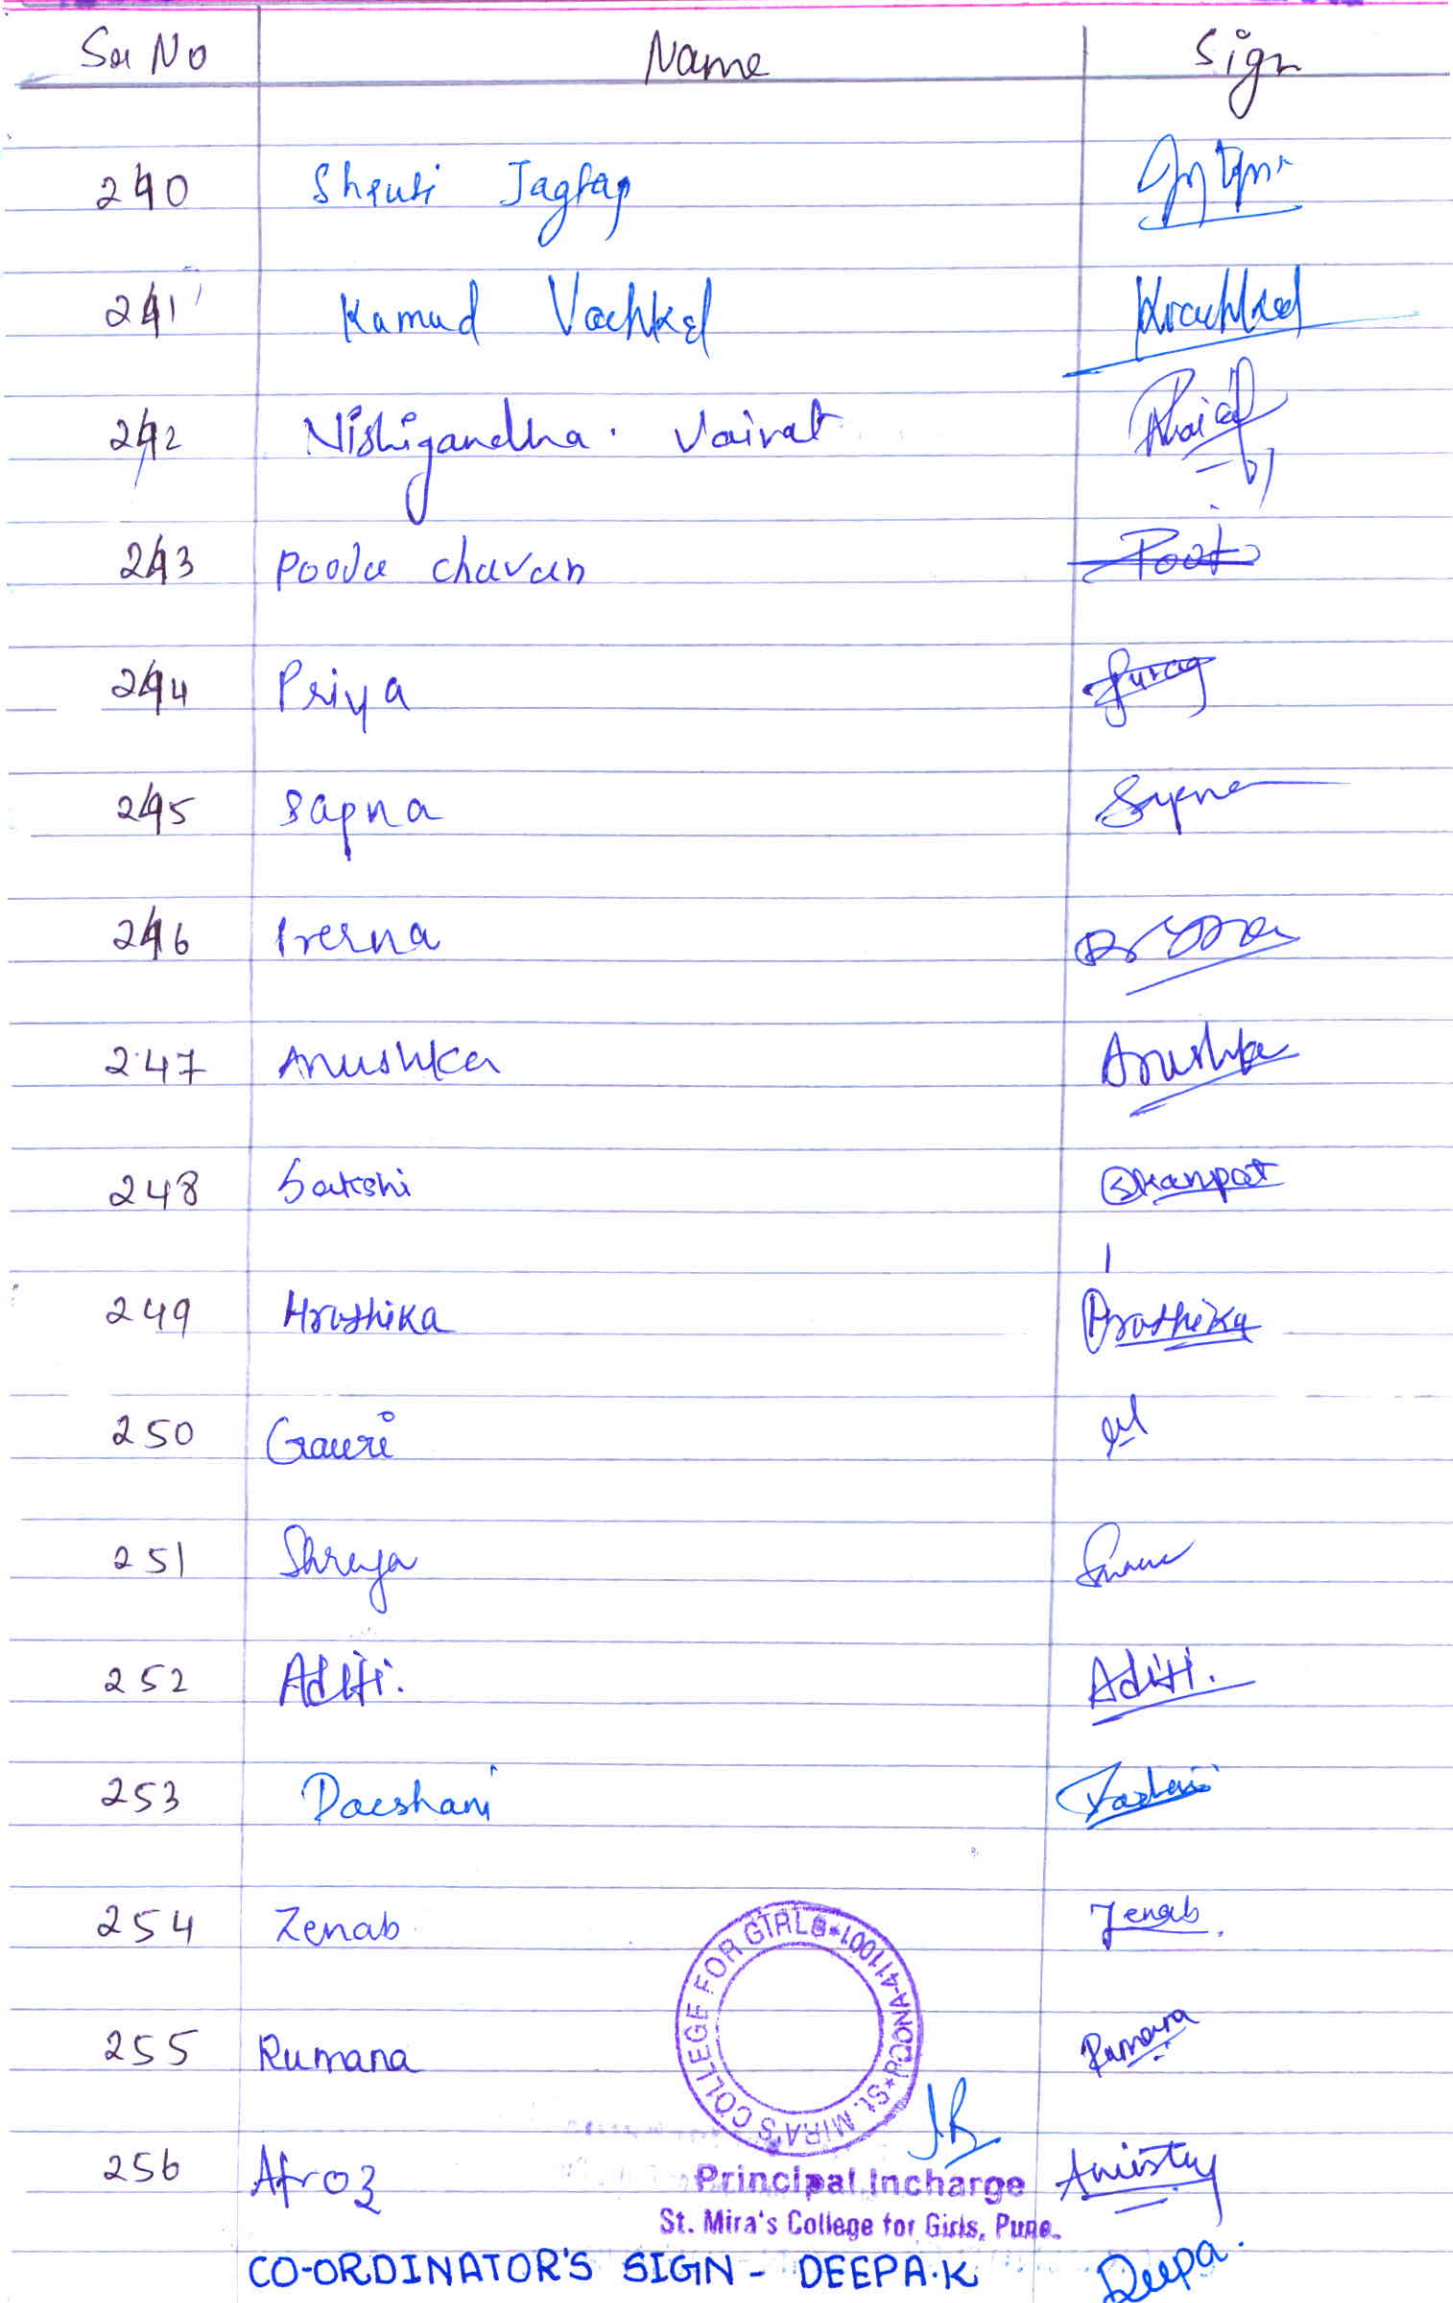 Sr No Name Sign
240 Shruti Jagtap
241 Kumud Vachkal
242 Nishigandha. Vairat
243 Pooja chavan
244 Priya
245 Sapna Sapna
246 Prerna
247 Anushka Anushka
248 Sakshi Skanpat
249 Hrushika
250 Gauri
251 Shreya
252 Aditi. Aditi.
253 Darshani
254 Zenab Zenab.
255 Rumana Rumana
256 Afroz
St. MIRA'S COLLEGE FOR GIRLS * POONA-411001 *
Principal Incharge
St. Mira's College for Girls, Pune.
CO-ORDINATOR'S SIGN - DEEPA.K Deepa.